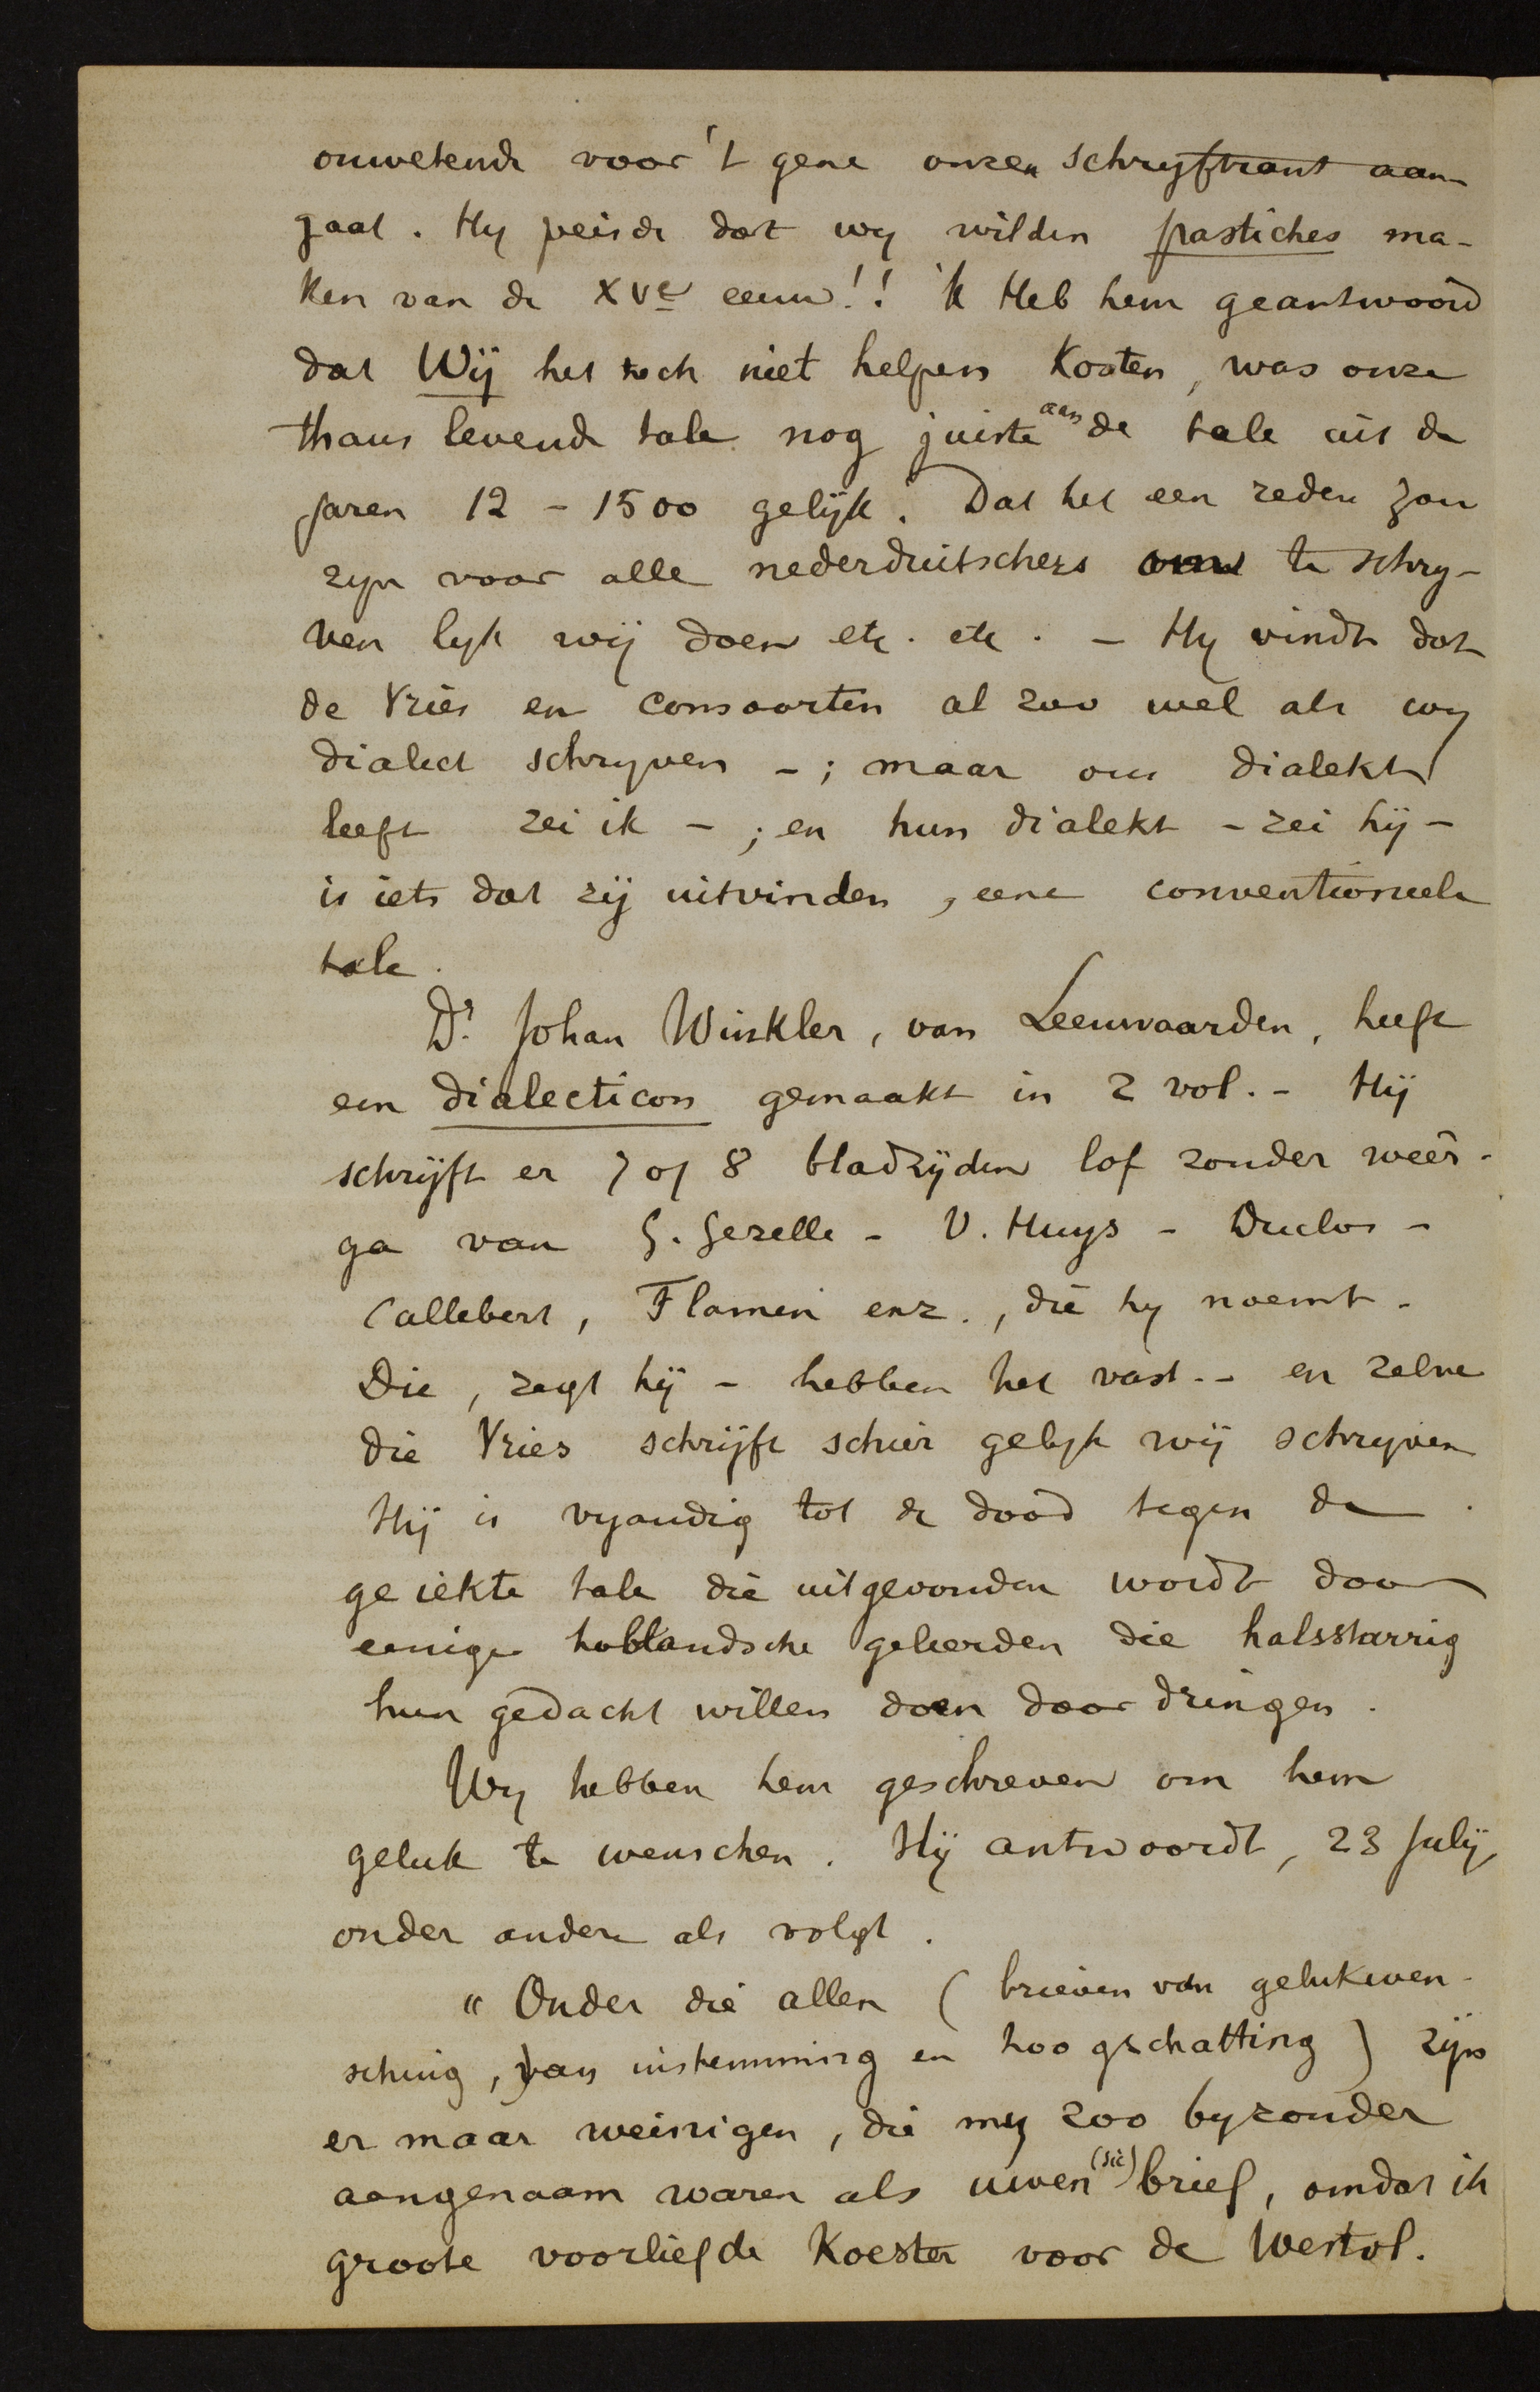 onwetende voor 't gene onzen schryftrant aan-
gaat. Hy peisde dat wy wilden pastiches ma-
ken van de XVe eeuw!! 'k Heb hem geantwoord
dat Wij het toch niet helpen kosten, was onze
thans levende tale nog juiste aan de tale uit de
jaren 12 - 1500 gelijk. Dat het een reden zou
zyn voor alle nederduitschers om te schry-
ven lyk wij doen etc. etc. - Hy vindt dat
de Vries en consoorten al zoo wel als wy
dialect schryven -; maar ons dialekt
leeft zei ik -; en hun dialekt - zei hij -
is iets dat zij uitvinden, eene conventioneele
tale.
Dr Johan Winkler, van Leeuwaarden, heeft
een dialecticon gemaakt in 2 vol. - Hij
schrijft er 7 of 8 bladzijden lof zonder weêr-
ga van G. Gezelle - V. Huys - Duclos -
Callebert, Flamen enz., die hy noemt.
Die, zegt hij - hebben het vast. - en zelve
die Vries schrijft schier gelyk wij schryven
Hij is vyandig tot de dood tegen de
geiekte tale die uitgevonden wordt door
eenige hollandsche geleerden die halsstarrig
hun gedacht willen doen door dringen.
Wy hebben hem geschreven om hem
geluk te wenschen. Hij antwoordt, 23 july,
onder andere als volgt.
"Onder die allen (brieven van gelukwen-
sching, van instemming en hoogschatting) zijn
er maar weinigen, die my zoo byzonder
aangenaam waren als uwen (sic) brief, omdat ik
groote voorliefde koester voor de Westvl.